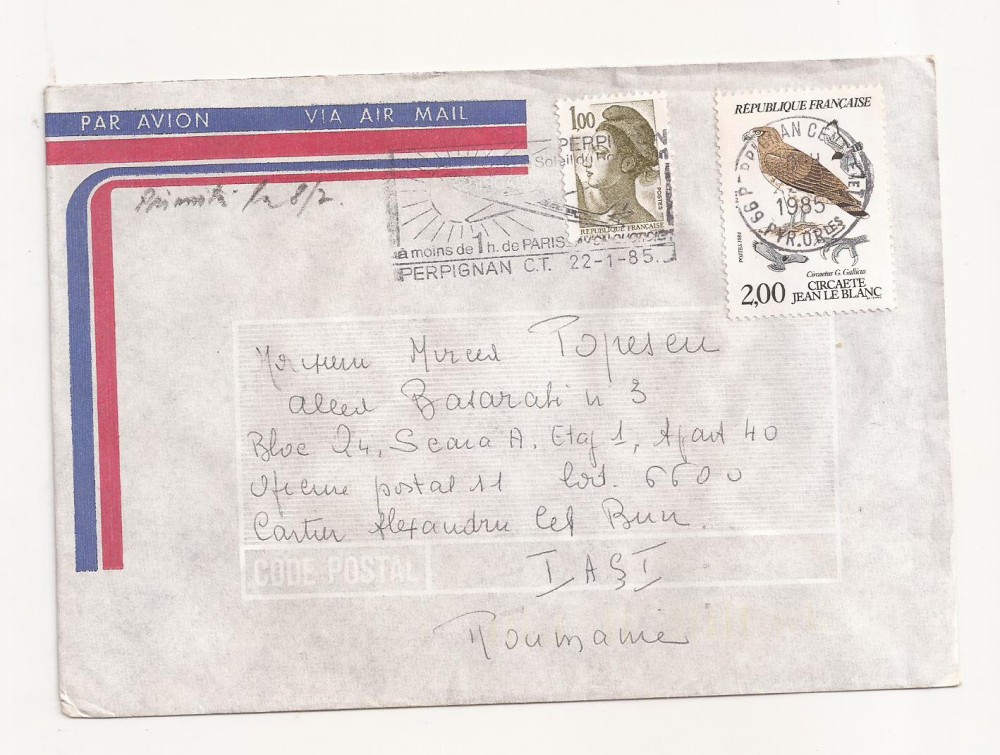 PAR AVION VIA AIR MAIL
1,00
POSTES
RÉPUBLIQUE FRANÇAISE
RÉPUBLIQUE FRANÇAISE
POSTES 1984
Circaetus G. Gallicus
2,00 CIRCAETE
JEAN LE BLANC
1985
66 PYR.OR.LES
PERPIGNAN
Soleil du
à moins de 1 h. de PARIS
PERPIGNAN C.T. 22-1-85
Primită la 8/2.
Monsieur Mircea Popescu
aleea Basarabi n 3
Bloc Q4, Scara A, Etaj 1, Apart 40
Oficiu postal 11 Cod. 6600
Cartier Alexandru Cel Bun.
CODE POSTAL
IAȘI
Roumanie